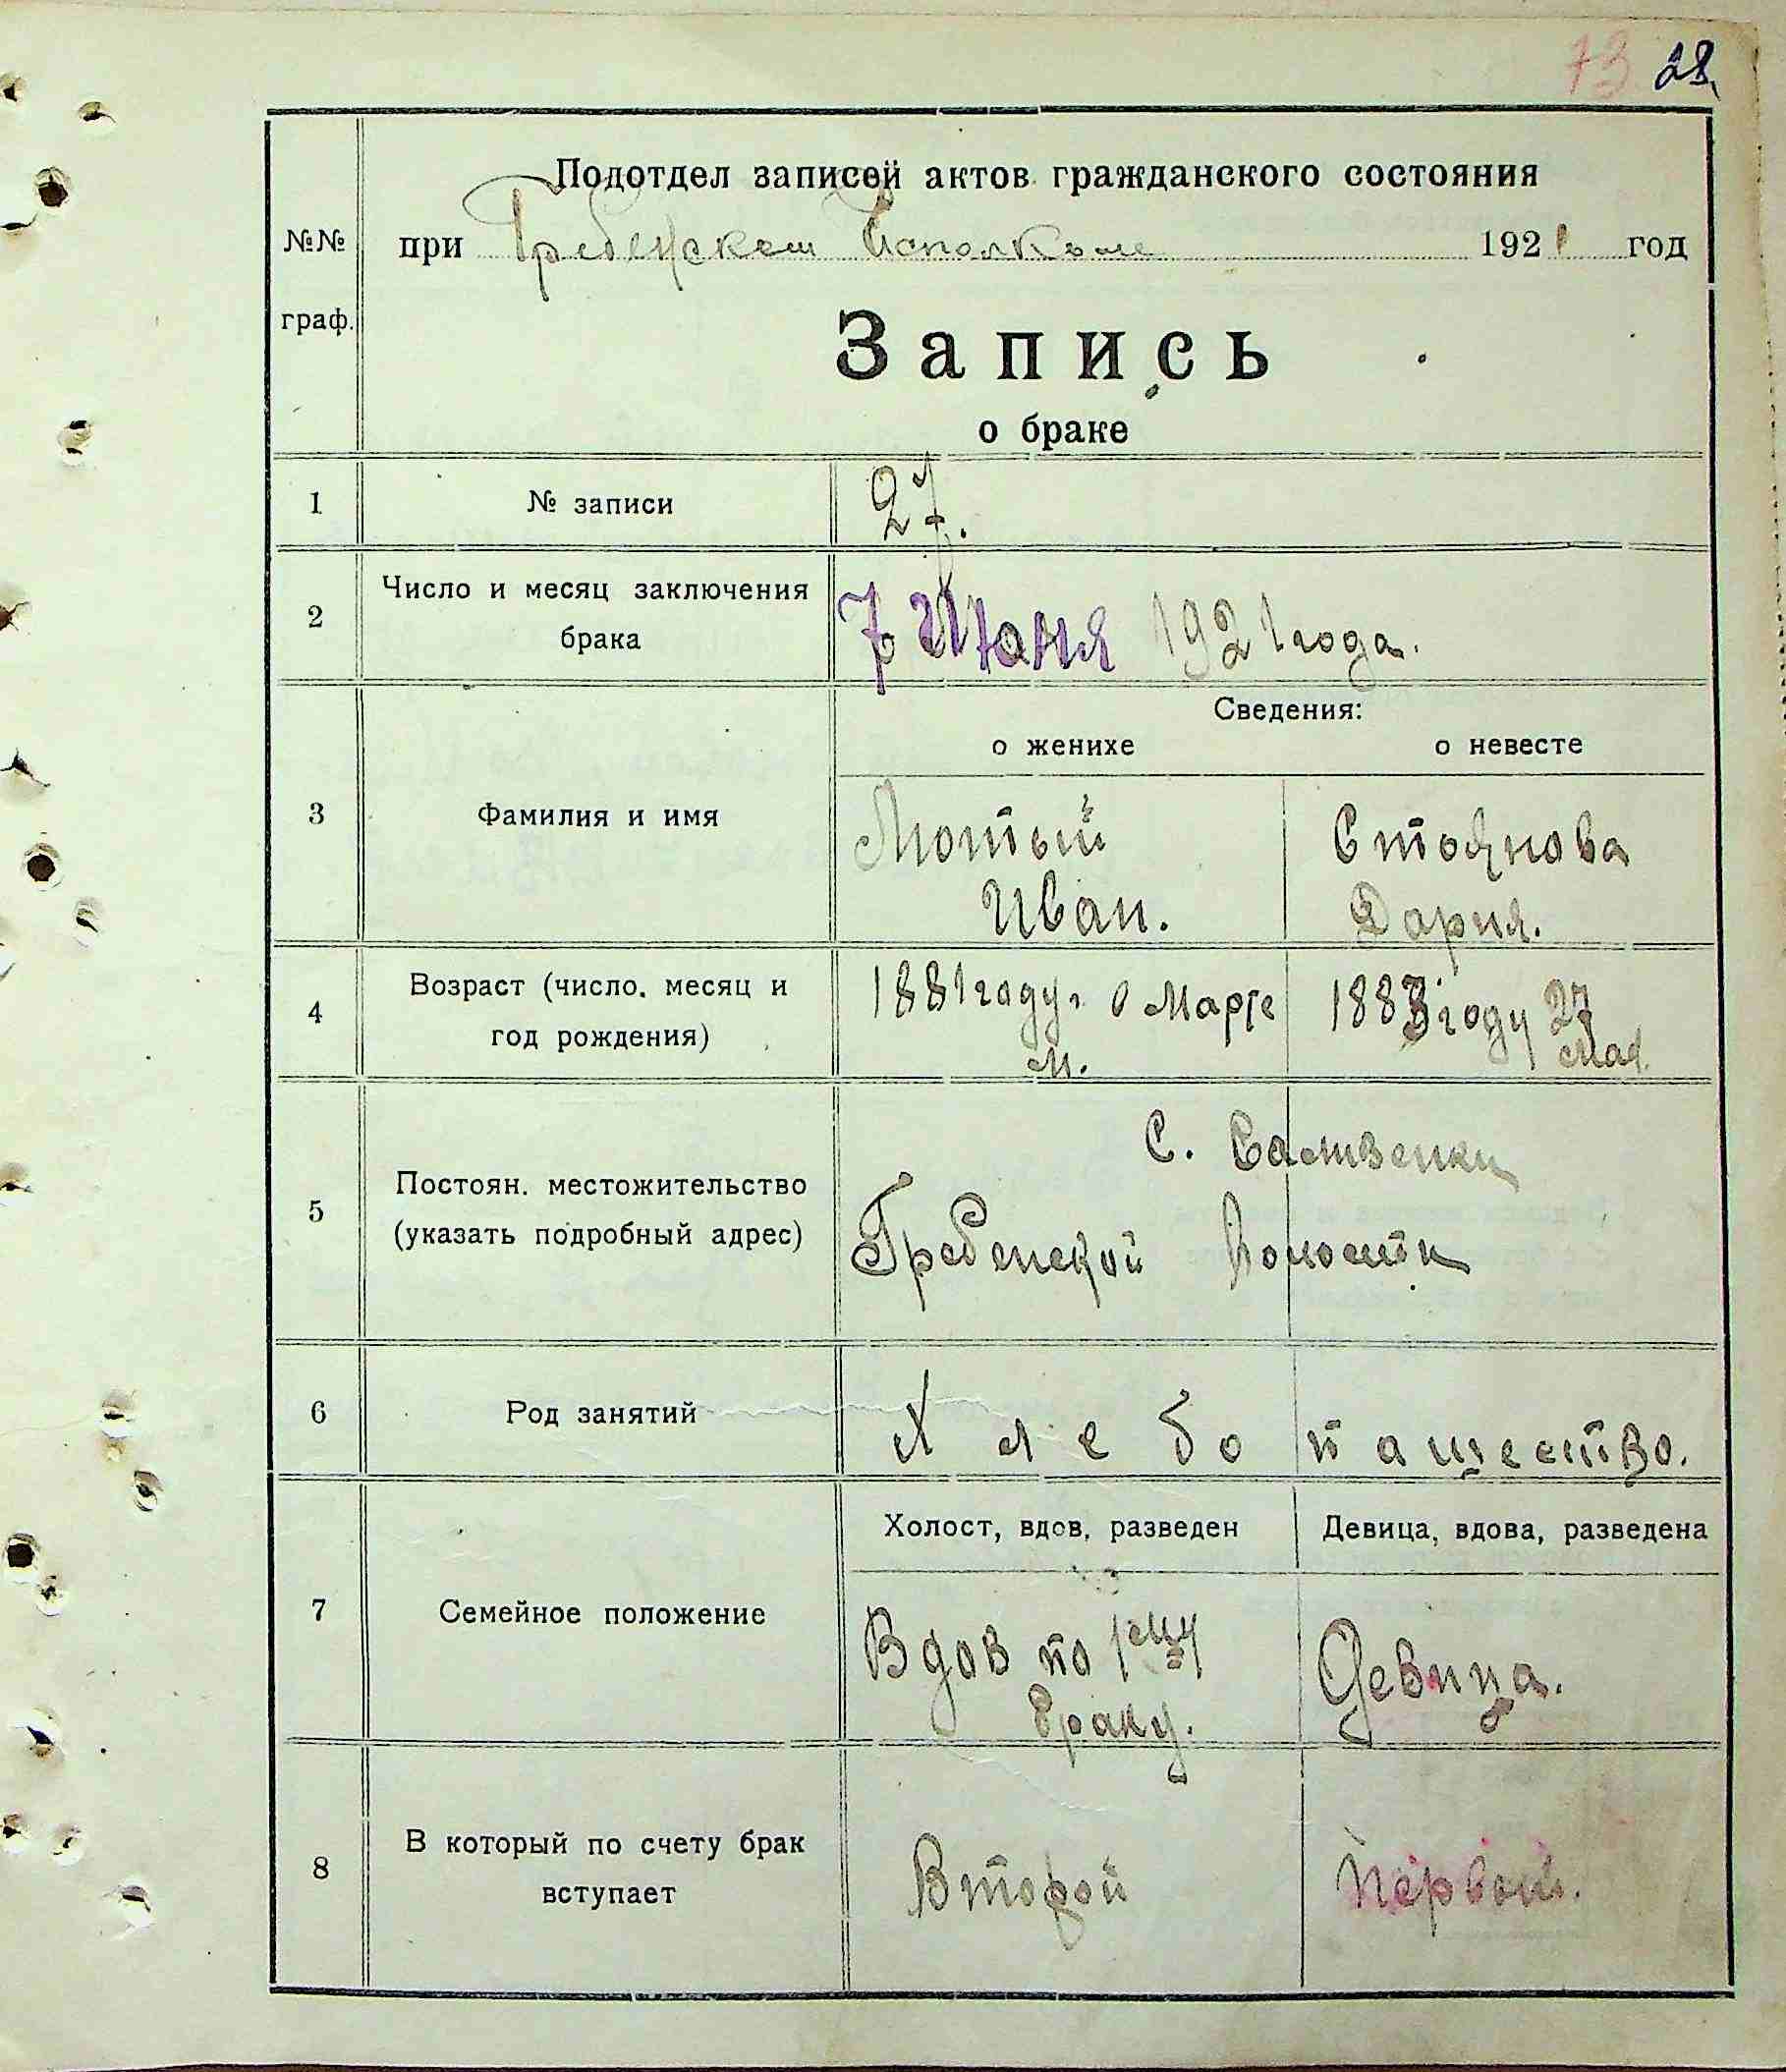 73 28
Подотдел записей актов гражданского состояния
№№ при Гребенском Исполкоме 1921 год
граф.
Запись
о браке
1 № записи 27.
2 Число и месяц заключения
брака
7 Июня 1921 года.
Сведения:
о женихе о невесте
3 Фамилия и имя
Лютый Стоянова
Иван. Дария.
4 Возраст (число, месяц и
год рождения)
1881 году. Марте 1883 году 27
м. Мая.
5 Постоян. местожительство
(указать подробный адрес)
С. Саливенки
Гребенской Волости
6 Род занятий Хлебопашество.
7 Семейное положение
Холост, вдов, разведен Девица, вдова, разведена
Вдов по 1ему Девица.
браку.
8 В который по счету брак
вступает
Второй Первый.